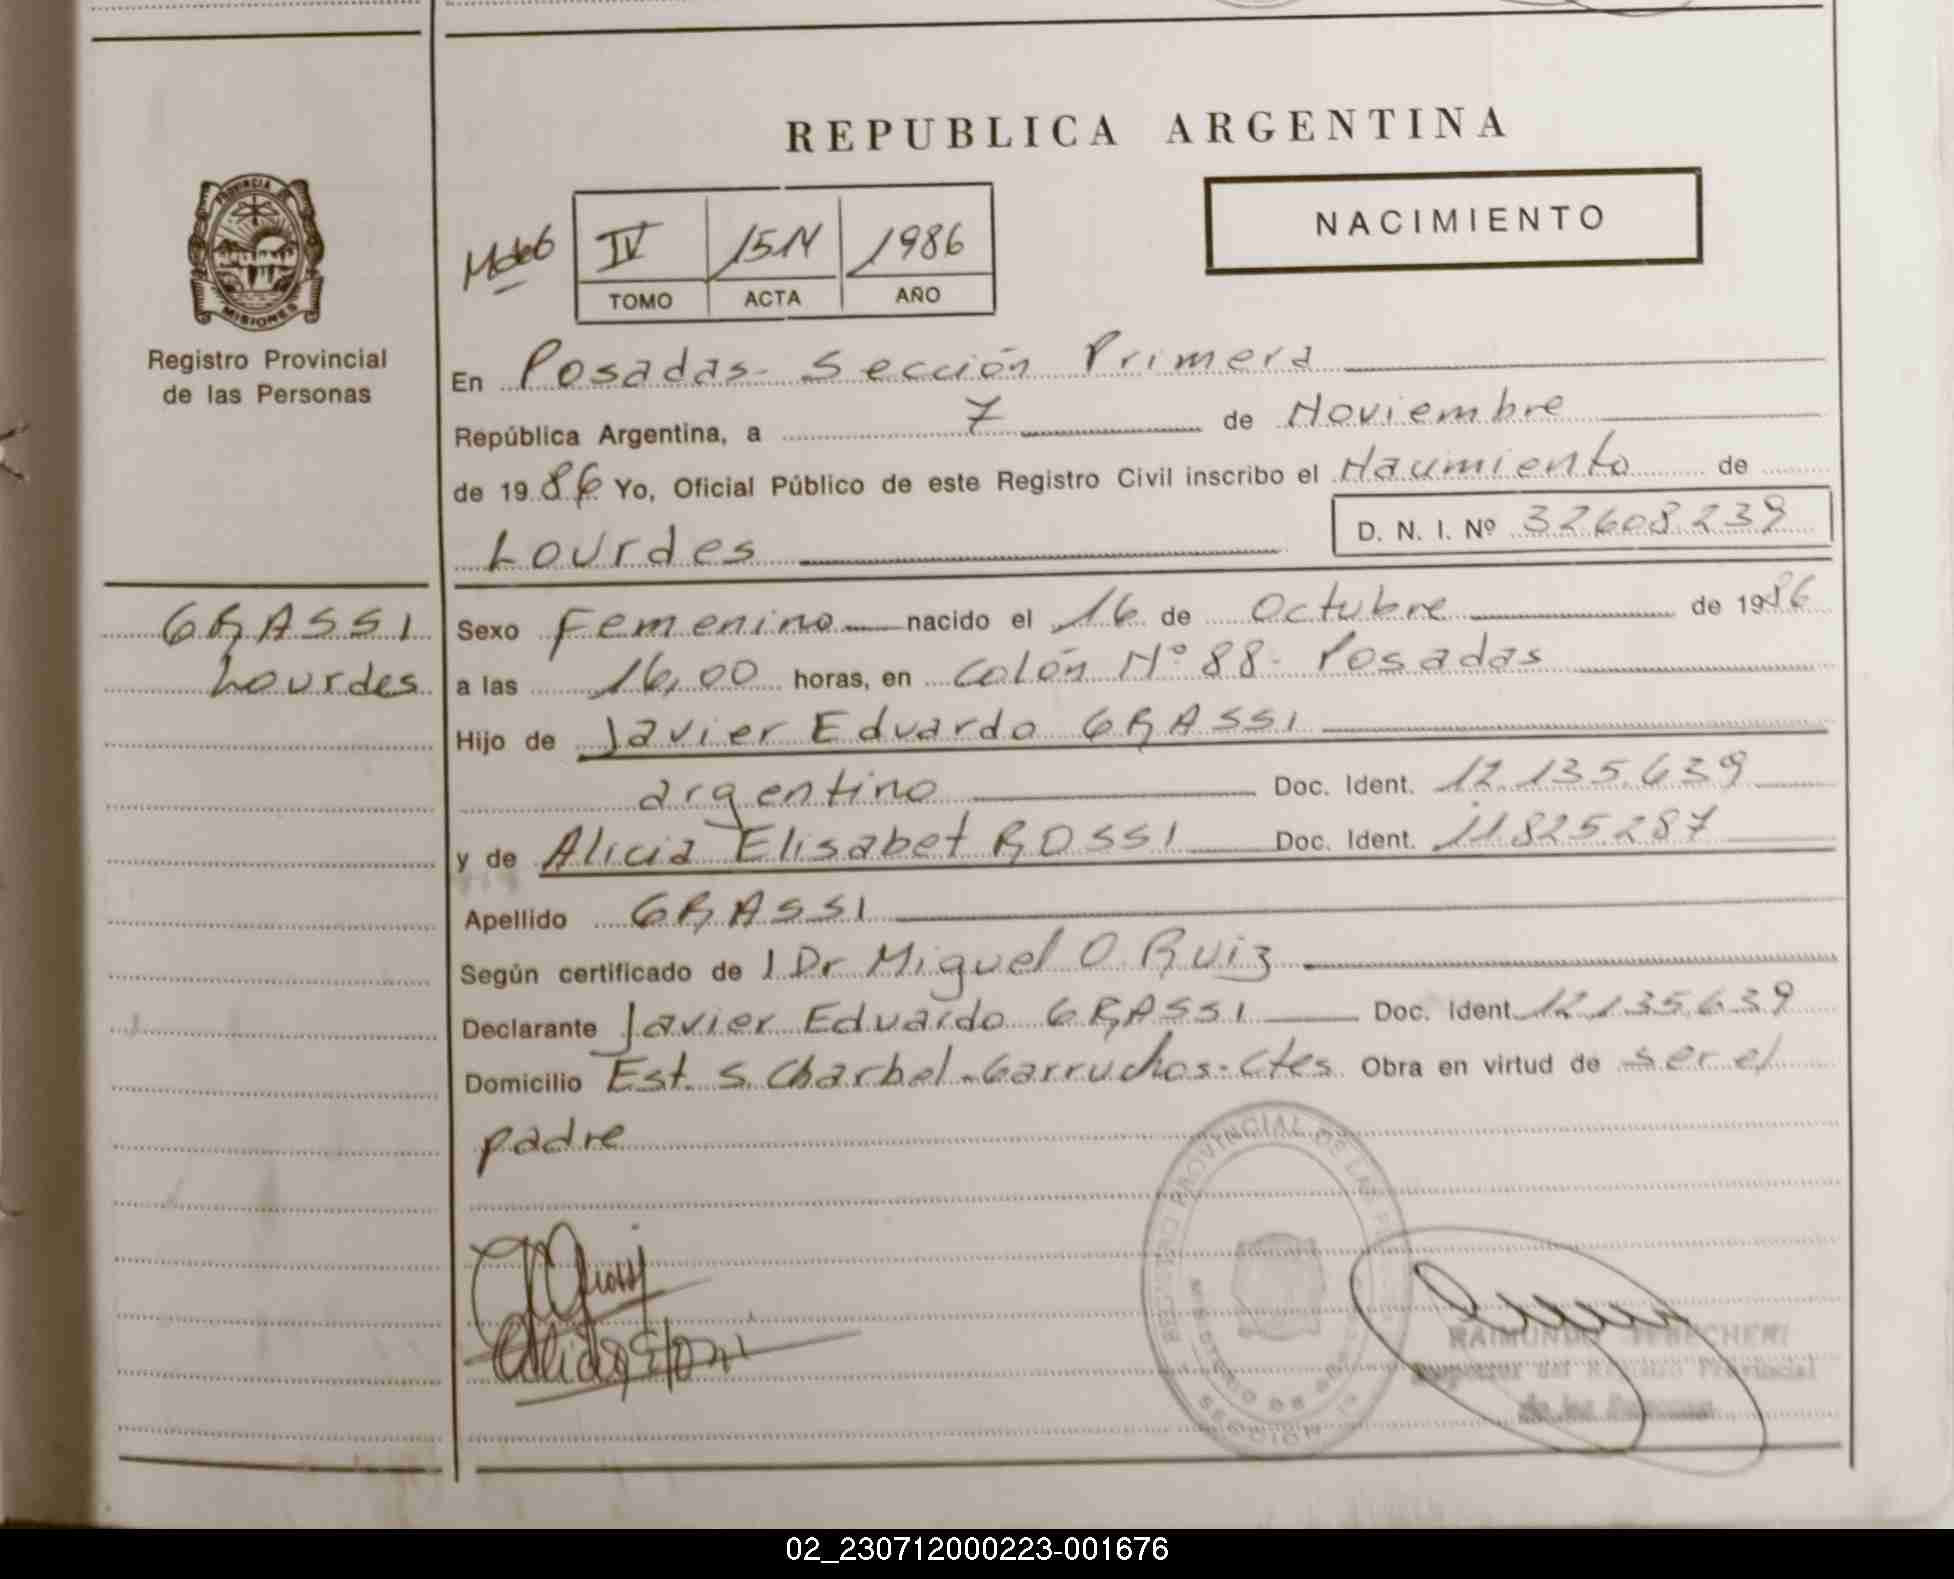 REPUBLICA ARGENTINA
NACIMIENTO
IV 1511 1986
TOMO ACTA AÑO
PROVINCIA DE
MISIONES
Registro Provincial
de las Personas
En Posadas- Sección Primera
República Argentina, a 7 de Noviembre
de 1986 Yo, Oficial Público de este Registro Civil inscribo el Nacimiento de
Lourdes D. N. I. Nº 32608239
GRASSI
Lourdes
Sexo Femenino nacido el 16 de Octubre de 1986
a las 16,00 horas, en Colón Nº 88- Posadas
Hijo de Javier Eduardo GRASSI
argentino Doc. Ident. 12.135.639
y de Alicia Elisabet ROSSI Doc. Ident. 11.825.287
Apellido GRASSI
Según certificado de l Dr Miguel O. Ruiz
Declarante Javier Eduardo GRASSI Doc. Ident. 12.135.639
Domicilio Est. S. Charbel-Garruchos-Ctes Obra en virtud de ser el
padre
REGISTRO PROVINCIAL DE LAS
SECCION 1ª
RAIMUNDO
Inspector del Registro Provincial
de las Personas
02_230712000223-001676